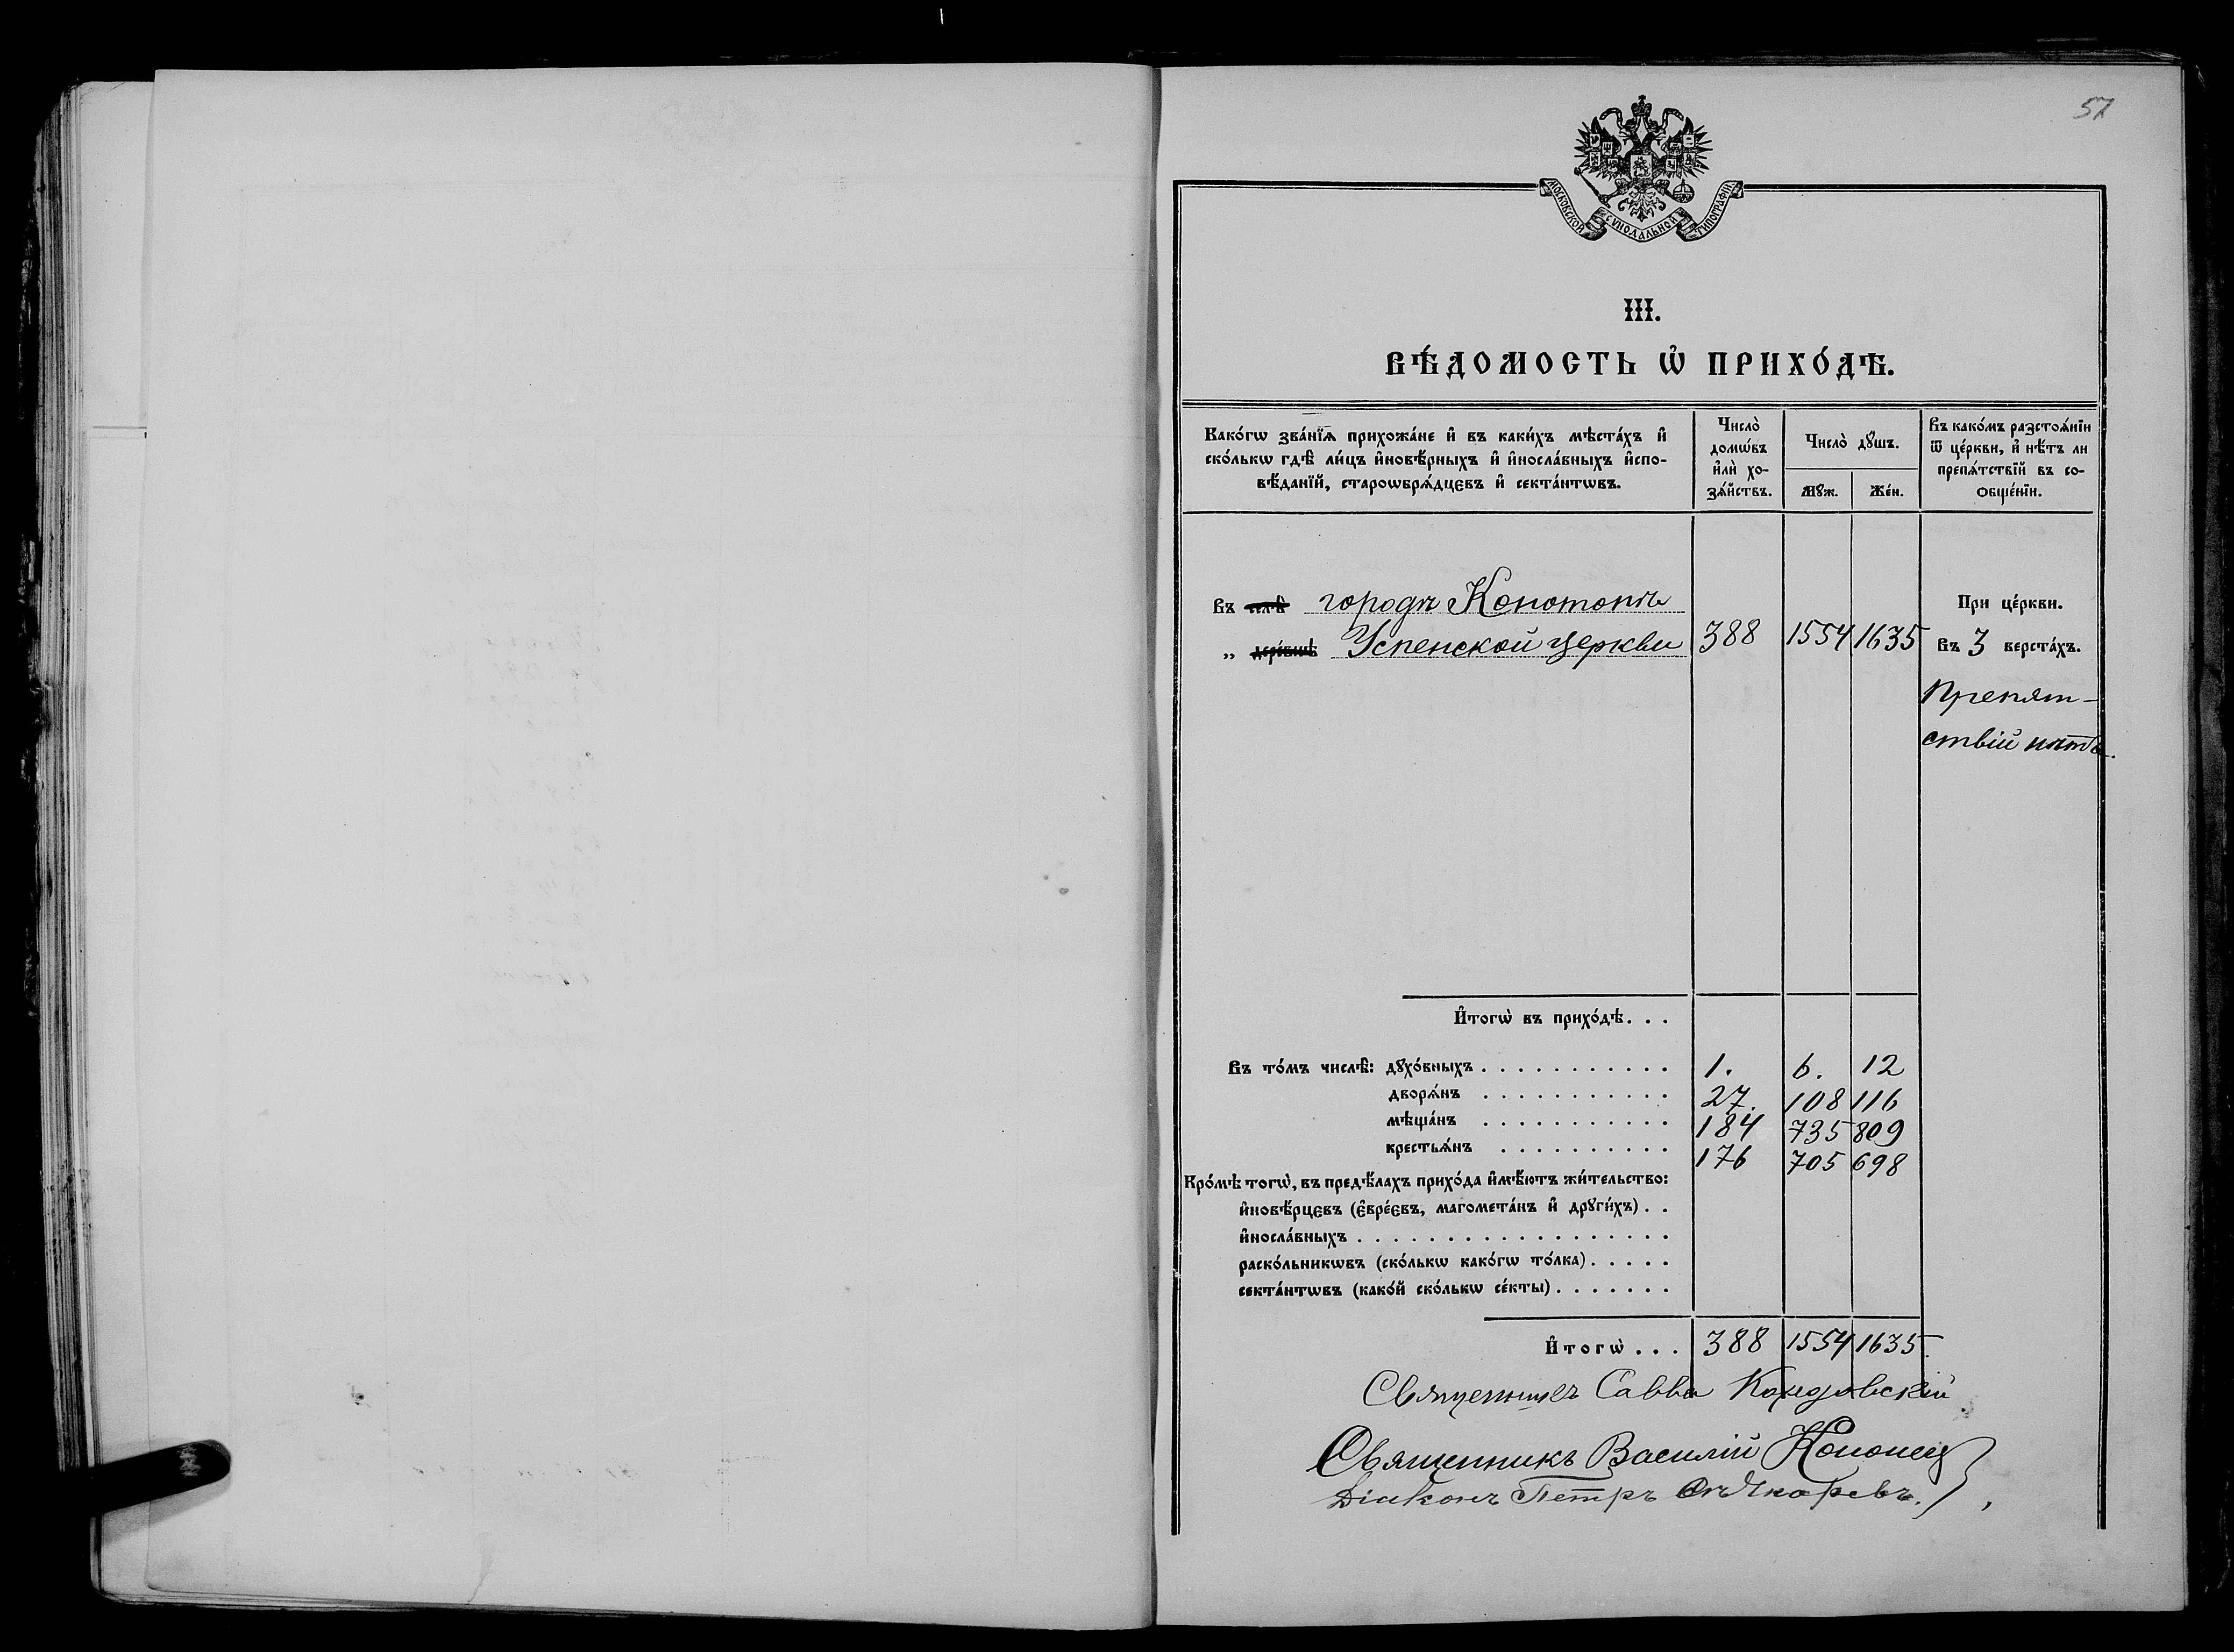 57
МОСКОВСКОЙ СѴНОДАЛЬНОЙ ТИПОГРАФІИ
III.
ВѢ́ДОМОСТЬ Ѡ҆ ПРИХО́ДѢ.
Како́гѡ зва́нїѧ прихожа́не и҆ въ каки́хъ мѣста́хъ и҆
ско́лькѡ гдѣ̀ ли́цъ и҆новѣ́рныхъ и҆ и҆носла́вныхъ и҆спо-
вѣ́данїй, староѡбрѧ́дцєвъ и҆ секта́нтѡвъ.
Число̀
домѡ́въ
и҆лѝ хо-
зѧ́йствъ.
Число̀ дꙋ́шъ.
Мꙋ́ж.
Же́н.
Въ како́мъ разстоѧ́нїи
ѿ це́ркви, и҆ нѣ́тъ ли
препѧ́тствїй въ со-
обще́нїи.
Въ селѣ̀ городѣ Конотопѣ При це́ркви.
„ дере́внѣ Успенской церкви 388 1554 1635 Въ 3 верста́хъ.
Препят-
ствій нѣтъ.
И҆тогѡ̀ въ прихо́дѣ. . .
Въ то́мъ числѣ̀: дꙋхо́вныхъ . . . . . . . . . . . 1. 6. 12
дворѧ́нъ . . . . . . . . . . . 27. 108 116
мѣща́нъ . . . . . . . . . . . 184 735 809
крестьѧ́нъ . . . . . . . . . . 176 705 698
Кро́мѣ тогѡ̀, въ предѣ́лахъ прихо́да и҆мѣ́ютъ жи́тельство:
и҆новѣ́рцєвъ (є҆вре́євъ, магомета́нъ и҆ дрꙋги́хъ) . .
и҆носла́вныхъ . . . . . . . . . . . . . . . . . .
раско́льникѡвъ (ско́лькѡ како́гѡ то́лка) . . . . .
секта́нтѡвъ (како́й ско́лькѡ се́кты) . . . . . . .
И҆тогѡ̀ . . . 388 1554 1635.
Священникъ Савва
Священникъ Василій Кононец
Діаконъ Петръ